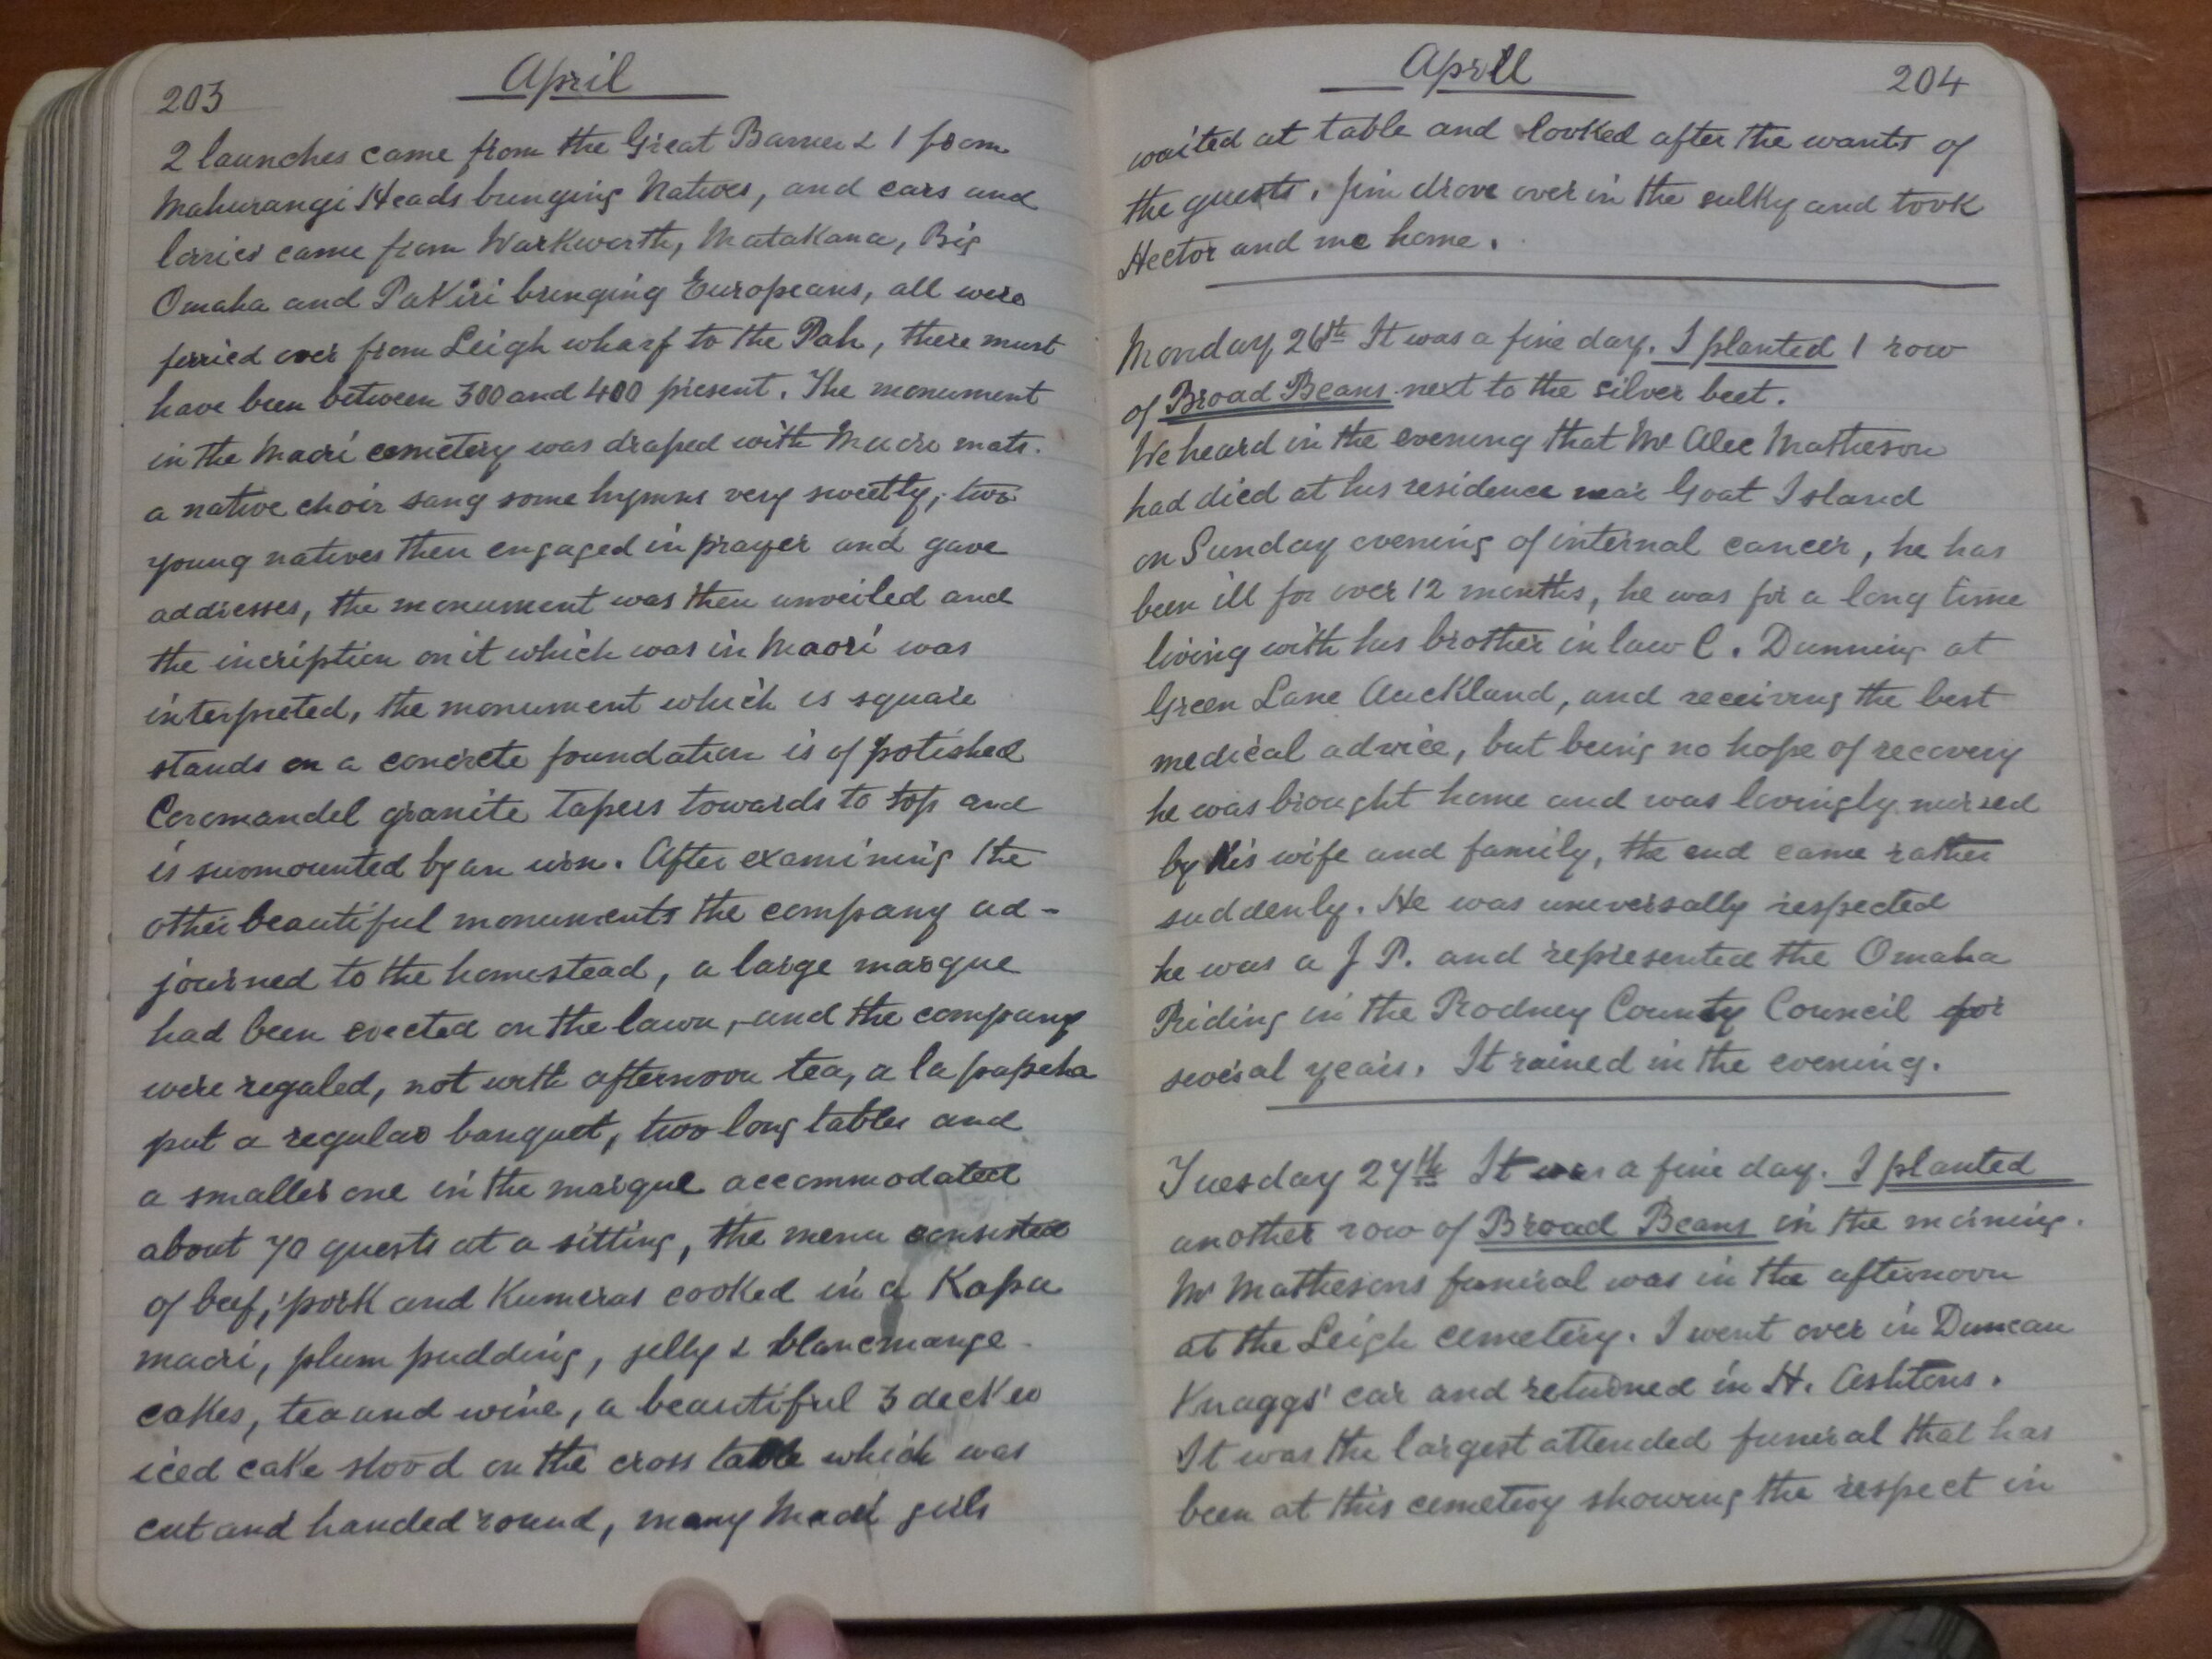 203
April
2 launches came from the Great Barrier & 1 from
Mahurangi Heads bringing Natives, and cars and
lorries came from Warkworth, Matakana, Big
Omaha and Pakiri bringing Europeans, all were
ferried over from Leigh wharf to the Pah, there must
have been between 300 and 400 present. The monument
in the Maori cemetery was draped with Maori mats.
a native choir sang some hymns very sweetly, two
young natives then engaged in prayer and gave
addresses, the monument was then unveiled and
the incription on it which was in Maori was
interpreted, the monument which is square
stands on a concrete foundation is of polished
Coromandel granite tapers towards to top and
is surmounted by an urn. After examining the
other beautiful monuments the company ad-
journed to the homestead, a large marque
had been erected on the lawn, and the company
were regaled, not with afternoon tea, a la papeha
but a regular banquet, two long tables and
a smaller one in the marque accommodated
about 70 guests at a sitting, the menu consisted
of beef, pork and Kumeras cooked in a Kapa
maori, plum pudding, jelly & blancmange
cakes, tea and wine, a beautiful 3 decker
iced cake stood on the cross table which was
cut and handed round, many Maori girls
April
204
waited at table and looked after the wants of
the guests. Jim drove over in the sulky and took
Hector and me home.
Monday 26th It was a fine day. I planted 1 row
of Broad Beans next to the silver beet.
We heard in the evening that Mr Alec Matheson
had died at his residence near Goat Island
on Sunday evening of internal cancer, he has
been ill for over 12 months, he was for a long time
living with his brother in law C. Dunning at
Green Lane Auckland, and receiving the best
medical advice, but being no hope of recovery
he was brought home and was lovingly nursed
by his wife and family, the end came rather
suddenly. He was universally respected
he was a J P. and represented the Omaha
Riding in the Rodney County Council for
several years. It rained in the evening.
Tuesday 27th It was a fine day. I planted
another row of Broad Beans in the morning.
Mr Mathesons funeral was in the afternoon
at the Leigh cemetery. I went over in Duncan
Knaggs' car and returned in H. Ashtons.
It was the largest attended funeral that has
been at this cemetery showing the respect in